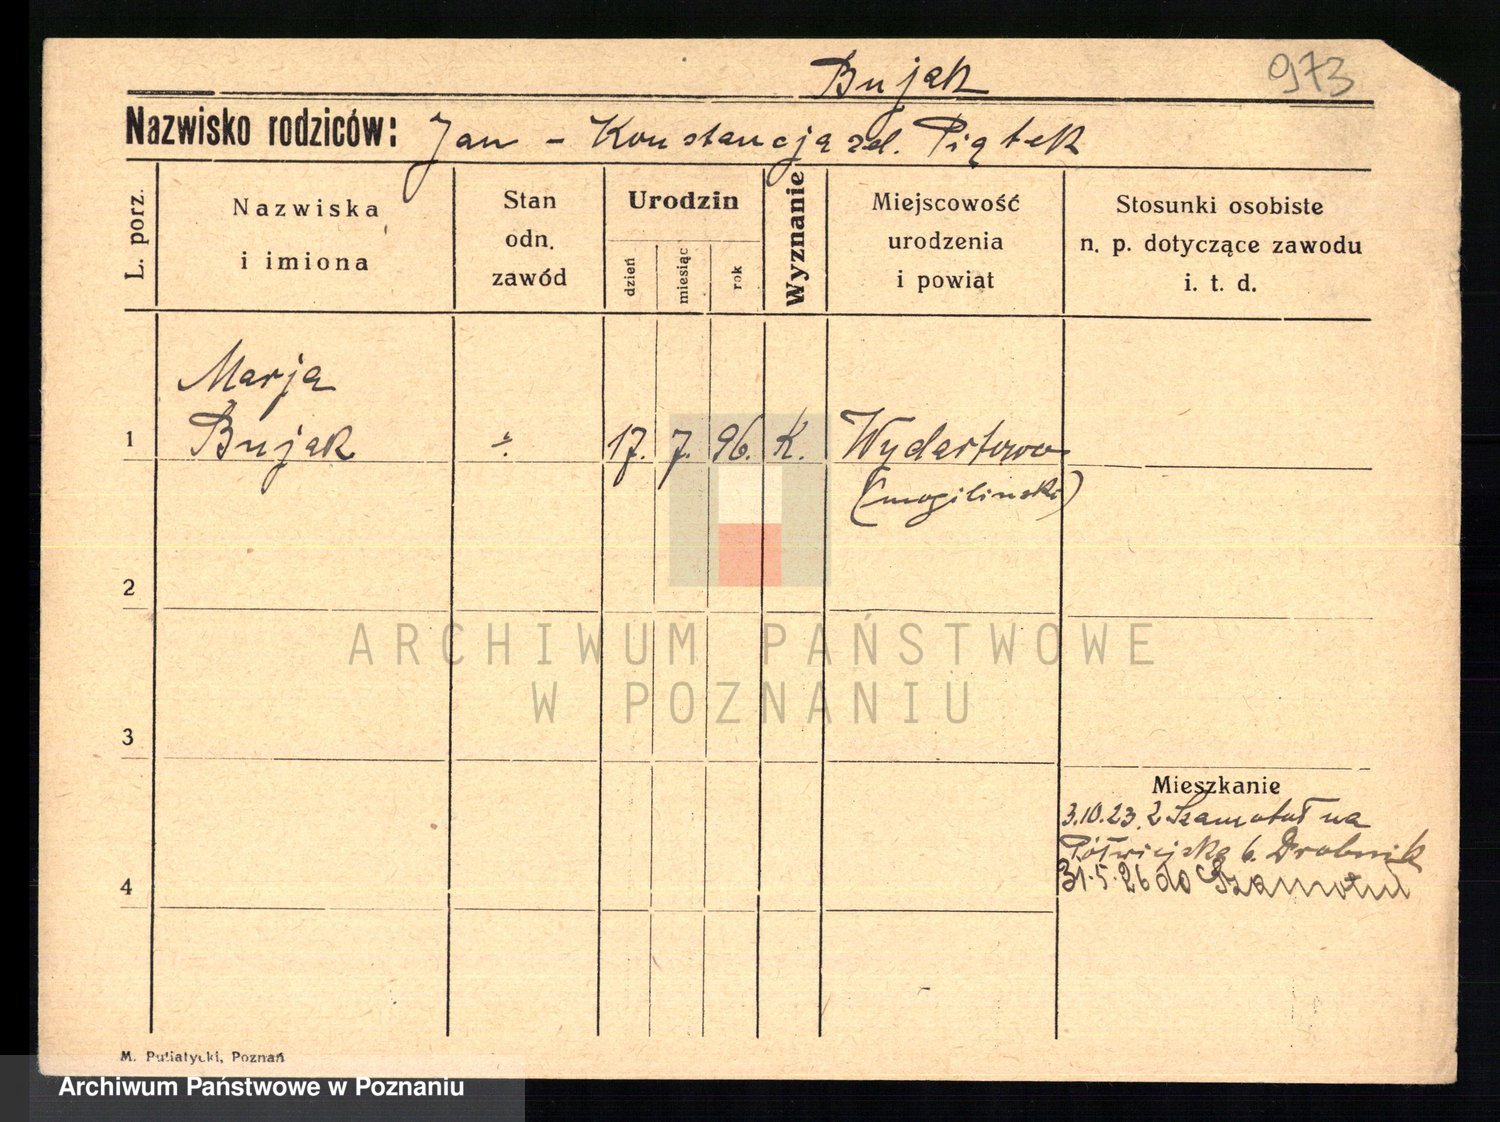 Bujak
973
Nazwisko rodziców: Jan - Konstancja zd. Piątek
L. porz.
Nazwiska
i imiona
Stan
odn.
zawód
Urodzin
dzień
miesiąc
rok
Wyznanie
Miejscowość
urodzenia
i powiat
Stosunki osobiste
n. p. dotyczące zawodu
i. t. d.
Marja
1 Bujak 17. 7. 96. K. Wydartowo
(mogilinski)
2
ARCHIWUM PAŃSTWOWE
W POZNANIU
3
Mieszkanie
3.10.23. z Szamotuł na
Półwiejska 6. Drobnik
4 31.5.26 do Szamotuł
M. Putiatycki, Poznań
Archiwum Państwowe w Poznaniu